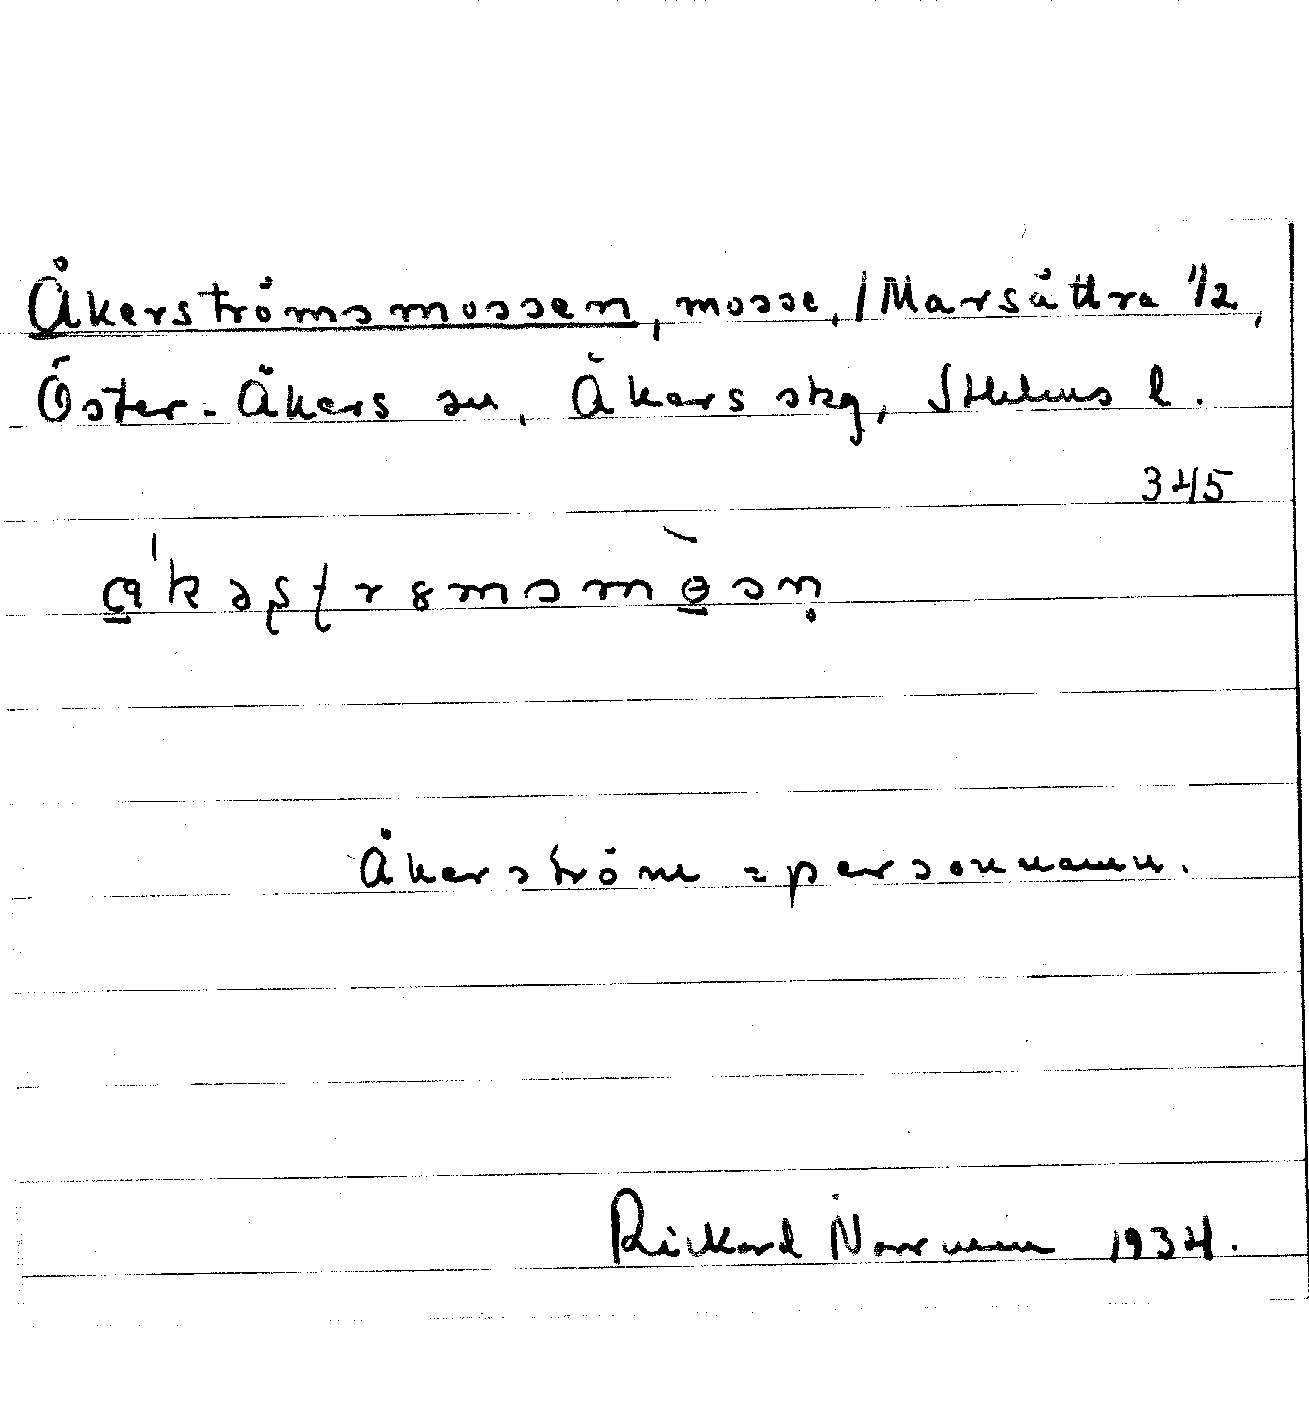 Åkerströmsmossen, mosse, / Marsättra 1/2,
Öster-Åkers sn, Åkers skg, Sthlms l.
345
Åkerström = personnamn.
Rickard Norrman 1934.